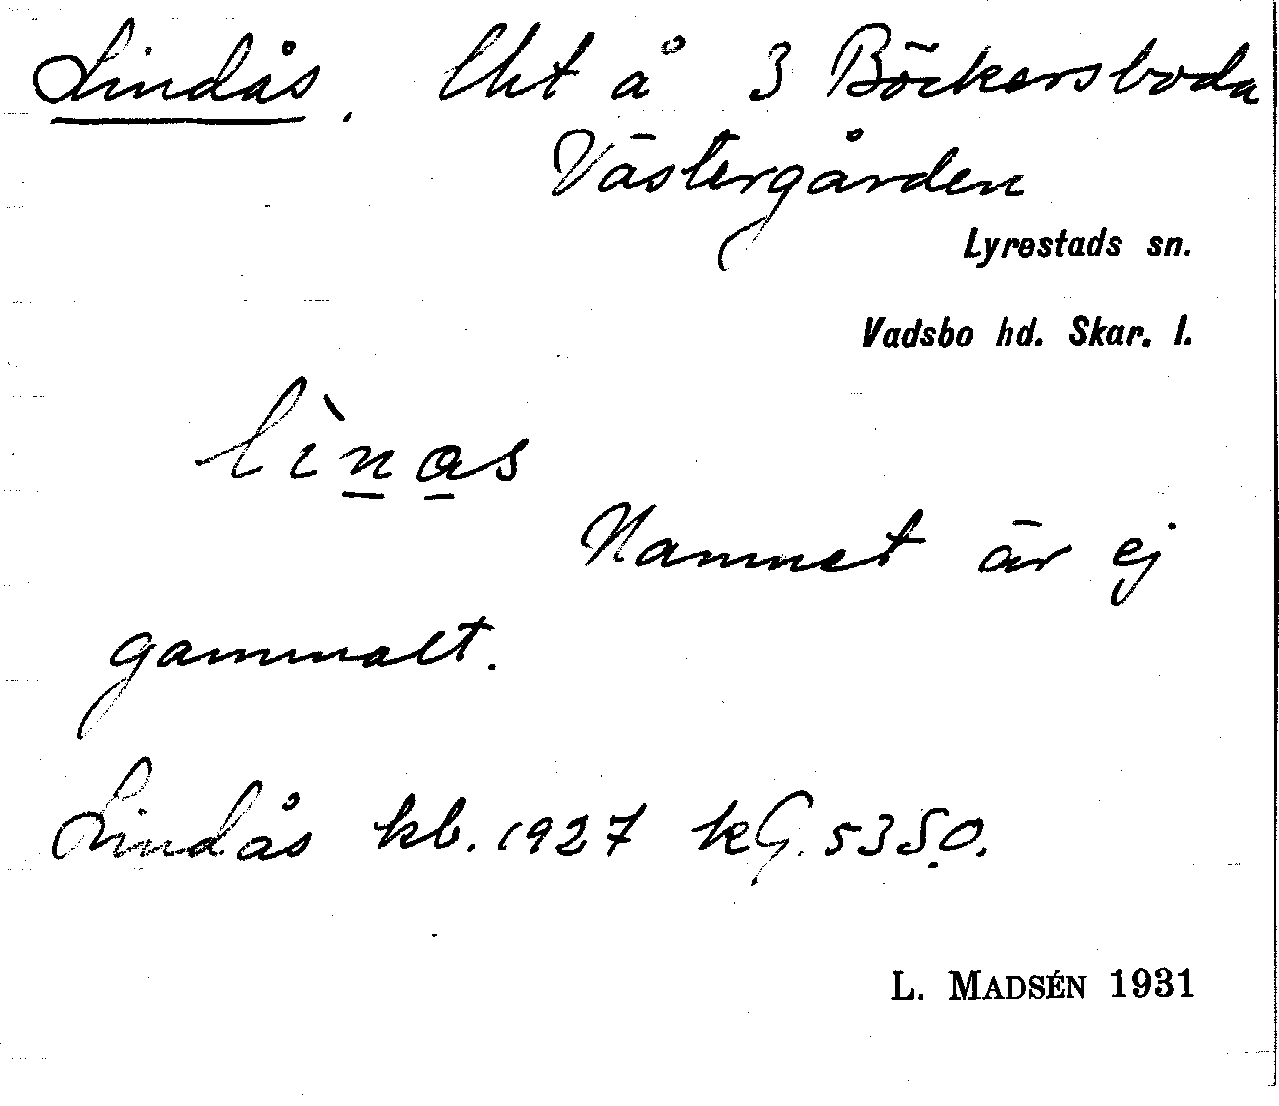 Lindås. Lht å 3 Böckersboda
Västergården
Lyrestads sn.
Vadsbo hd. Skar. l.
lìnas
Namnet är ej
gammalt.
Lindås kb. 1927 kG. 53 S.O.
L. MADSÉN 1931